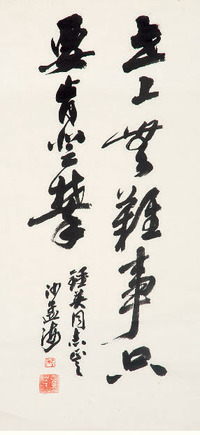 世上無難事只
要肯登攀
鍾英同志正之
沙孟海